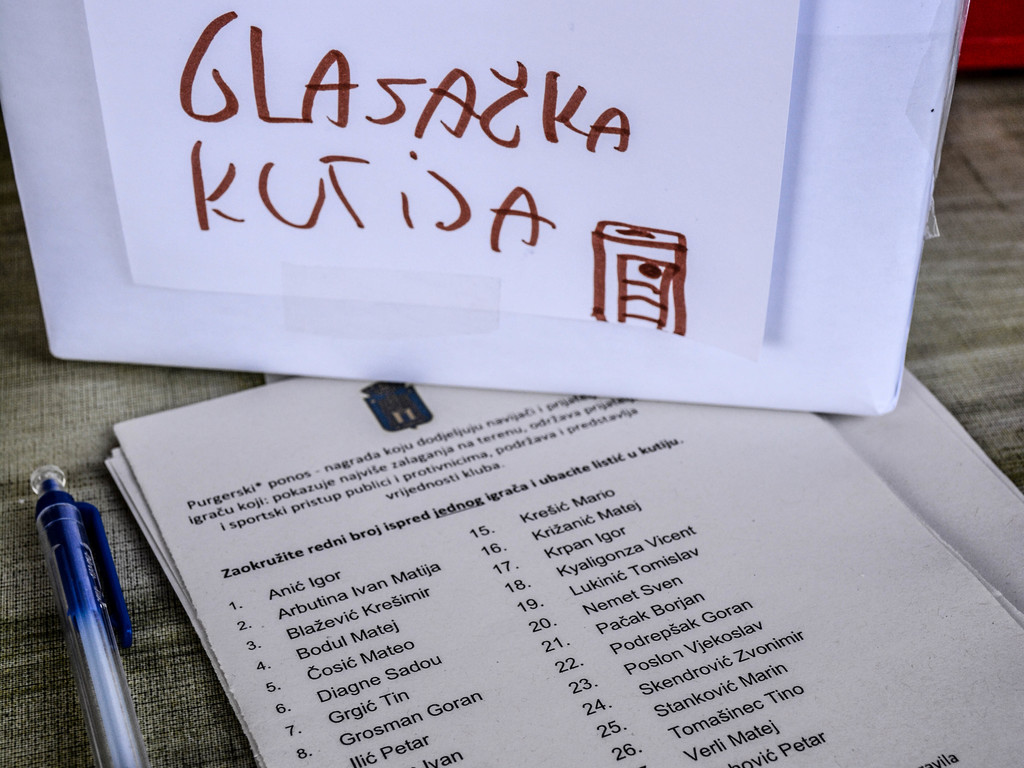 GLASAČKA
KUTIJA
Purgerski* ponos - nagrada koju dodjeljuju navijači i
igraču koji: pokazuje najviše zalaganja na terenu, održava
i sportski pristup publici i protivnicima, podržava i predstavlja
vrijednosti kluba.
Zaokružite redni broj ispred jednog igrača i ubacite listić u kutiju.
1. Anić Igor
2. Arbutina Ivan Matija
3. Blažević Krešimir
4. Bodul Matej
5. Čosić Mateo
6. Diagne Sadou
7. Grgić Tin
8. Grosman Goran
Ilić Petar
Ivan
15. Krešić Mario
16. Križanić Matej
17. Krpan Igor
18. Kyaligonza Vicent
19. Lukinić Tomislav
20. Nemet Sven
21. Pačak Borjan
22. Podrepšak Goran
23. Poslon Vjekoslav
24. Skendrović Zvonimir
25. Stanković Marin
26. Tomašinec Tino
Verli Matej
Petar